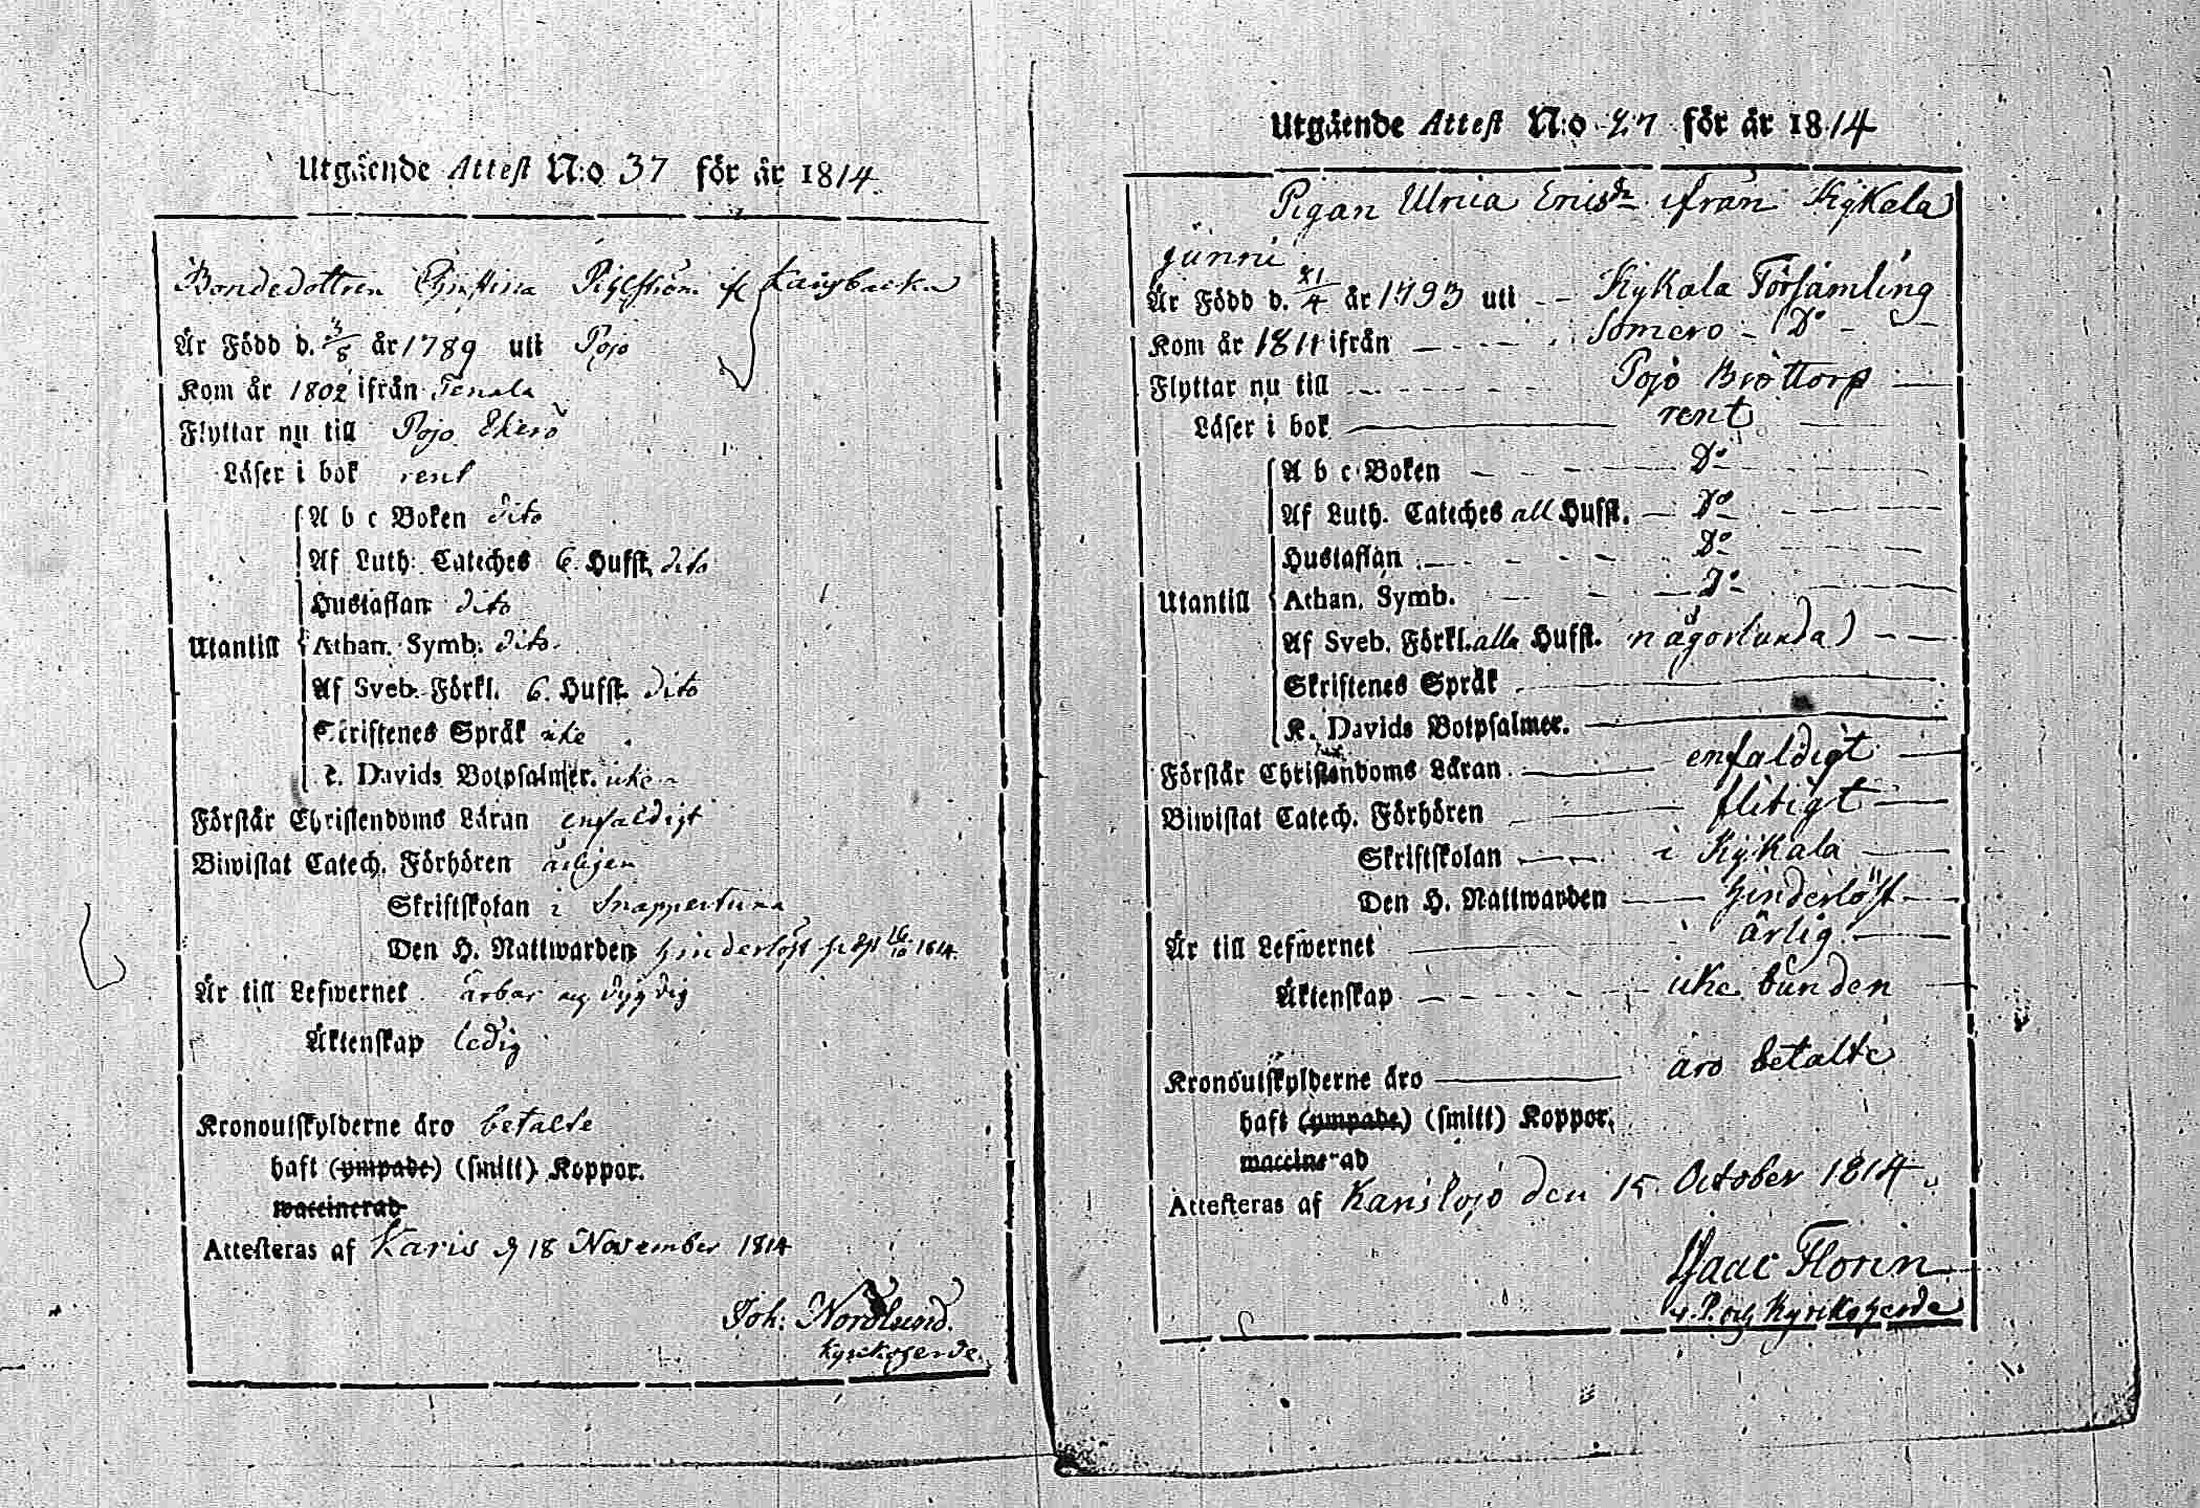 Utgående Attest N:o 37 för år 1814.
Bondedottren Christina
Är Född d. 3/8 år 1789 uti Pojo
Kom år 1802 ifrån Tenala
Flyttar nu till Pojo Ekerö
Läser i bok rent
A b c Boken dito
Af Luth: Cateches 6. Hufst. dito
Hustaflan dito
Utantill Athan. Symb. dito.
Af Sveb. Förkl. 6. Hufst. dito
Skriftenes Språk icke
K. Davids Botpsalmer. icke
Förstår Christendoms Läran enfaldigt
Biwistat Catech. Förhören årligen
Skriftskolan i Snappertuna
Den H. Nattwarden hinderlöst 16/10 1814.
Är till Lefwernet ärbar och dygdig
Äktenskap ledig
Kronoutskylderne äro betalte
haft (ympade) (smitt) Koppor.
waccinerad
Attesteras af Karis d 18 November 1814
Joh: Nordlund.
Kyrckoherde.
Utgående Attest N:o 27 för år 1814
Pigan Ulrica Ericsdr ifrån Kijkala
Är Född d. 21/4 år 1793 uti Kijkala Församling
Kom år 1811 ifrån Somero Do
Flyttar nu till Pojo Bröttorp
Läser i bok rent
A b c Boken Do
Af Luth. Cateches all Hufst. Do
Hustaflan Do
Utantill Athan. Symb. Do
Af Sveb. Förkl. alla Hufst. någorlunda
Skriftenes Språk
K. Davids Botpsalmer.
Förstår Christendoms Läran enfaldigt
Biwistat Catech. Förhören flitigt
Skriftskolan i Kijkala
Den H. Nattwarden hinderlöst
Är till Lefwernet ärlig
Äktenskap icke bunden
Kronoutskylderne äro äro betalte
haft (ympade) (smitt) Koppor.
waccinerad
Attesteras af Karislojo den 15 October 1814.
Isaac Florin
v. P. och Kyrckoherde